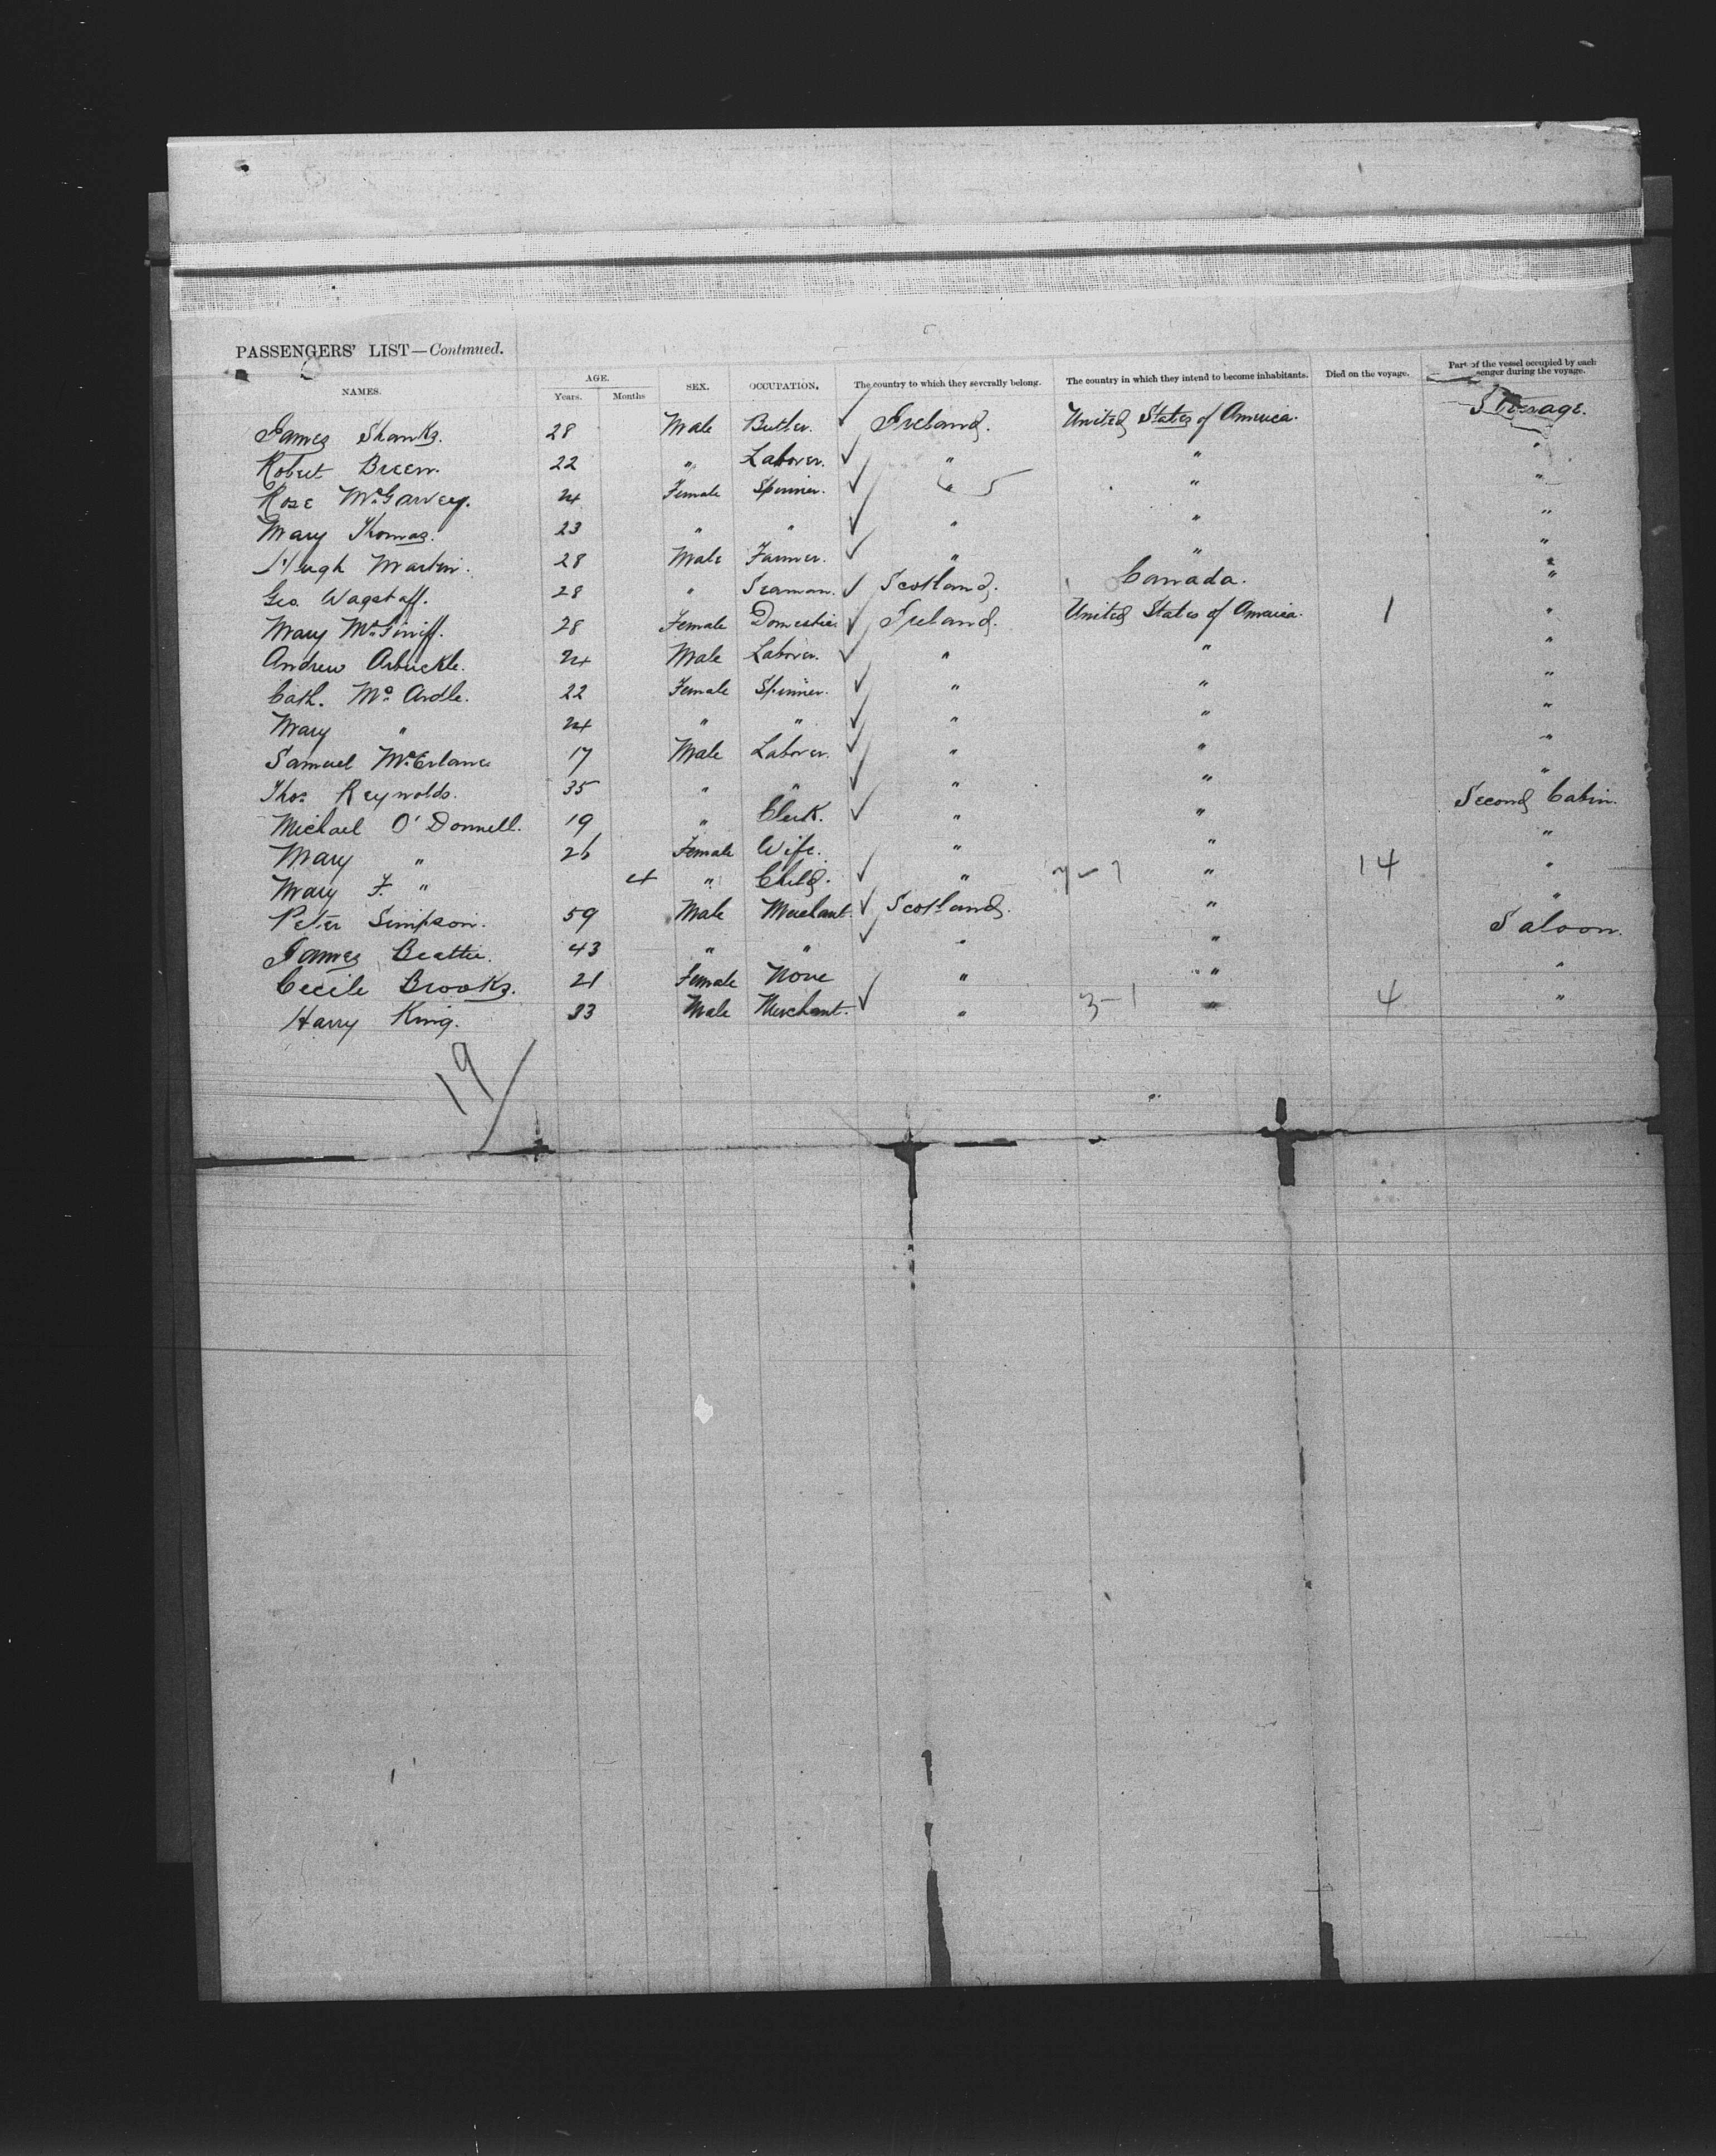 PASSENGERS' LIST—Continued.
NAMES. AGE. Years. Months SEX. OCCUPATION. The country to which they severally belong. The country in which they intend to become inhabitants. Died on the voyage. Part of the vessel occupied by each senger during the voyage.
James Shanks. 28 Male Butler. ✓ Ireland. United States of America. Steerage.
Robert Breen. 22 " Laborer. ✓ " " "
Rose McGarvey. 24 Female Spinner. ✓ " 5 " "
Mary Thomas. 23 " " ✓ " " "
Hugh Martin. 28 Male Farmer. ✓ " " "
Geo. Wagstaff. 28 " Seaman. ✓ Scotland. Canada. "
Mary McGiniff. 28 Female Domestic ✓ Ireland. United States of America. 1 "
Andrew Arbuckle. 24 Male Laborer. ✓ " " "
Cath. Mc Ardle. 22 Female Spinner. ✓ " " "
Mary " 24 " " ✓ " " "
Samuel McErlane 17 Male Laborer. ✓ " " "
Thos. Reynolds. 35 " " ✓ " " "
Michael O'Donnell. 19 " Clerk. ✓ " " Second Cabin.
Mary " 26 Female Wife. " " "
Mary F. " 4 " Child. ✓ " " 14 "
Peter Simpson. 59 Male Merchant. ✓ Scotland. " "
James Beattie. 43 " " ✓ " " Saloon.
Cecile Brooks. 21 Female None " " "
Harry King. 33 Male Merchant. ✓ " 3-1 " 4 "
19/